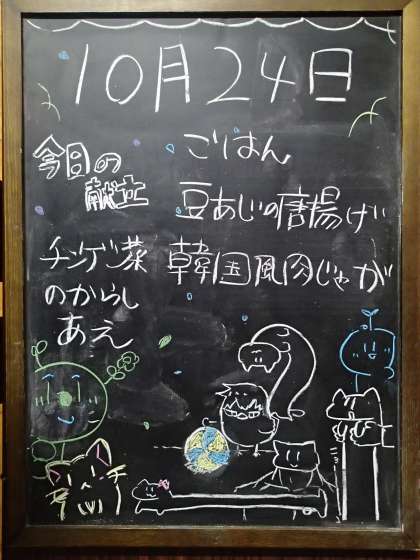 10月24日
今日の
献立
ごはん
豆あじの唐揚げ
韓国風肉じゃが
チンゲン菜
のからし
あえ